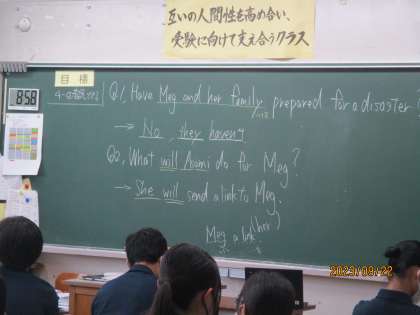 互いの人間性を高め合い、
受験に向けて支え合うクラス
目標
8:58
Q1, Have Meg and her family prepared for a disaster?
→ No, they haven't
Q2, What will Asami do for Meg?
→ She will send a link to Meg.
Meg a link
(her)
2023/09/22